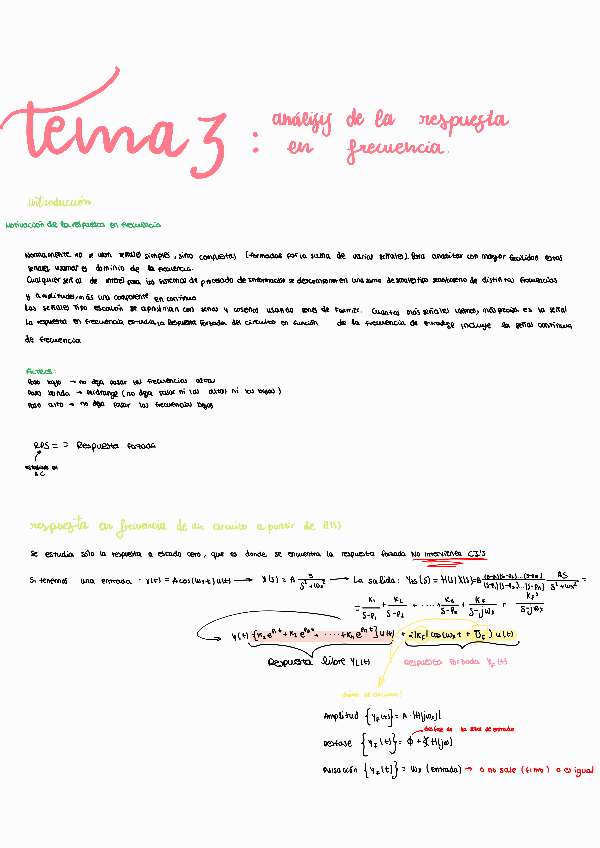 tema 3 : análisis de la respuesta
en frecuencia.
introducción.
Motivación de la respuesta en frecuencia
Normalmente no se usan señales simples, sino compuestas (formadas por la suma de varias señales). Para analizar con mayor facilidad estas
señales usamos el dominio de la frecuencia.
Cualquier señal de interés para los sistemas de procesado de información se descompone en una suma de señales tipo senoidales de distintas frecuencias
y amplitudes, más una componente en continua
Las señales tipo escalón se aproximan con senos y cosenos usando series de Fourier. Cuantas más señales usemos, más precisa es la señal
La respuesta en frecuencia estudia la Respuesta Forzada del circuito en función de la frecuencia de entrada e incluye la señal continua
de frecuencia
FILTROS:
Paso bajo → no deja pasar las frecuencias altas
Paso banda → midrange (no deja pasar ni las altas ni las bajas)
Paso alto → no deja pasar las frecuencias bajas
RPS = Respuesta forzada
respuesta en frecuencia de un circuito a partir de H(s)
Se estudia sólo la respuesta a estado cero, que es donde se encuentra la respuesta forzada No intervienen CI'S
Si tenemos una entrada: x(t) = A cos(ωxt) u(t) → X(s) = A s/(s²+ωx²) → La salida: Yes(s) = H(s)X(s) =
Respuesta libre YL(t) Respuesta forzada YF(t)
Amplitud {YF(t)} = A·|H(jωx)|
desfase de la señal de entrada
Desfase {YF(t)} =
Pulsación {YF(t)} = ωx (entrada) → o no sale (filtro) o es igual